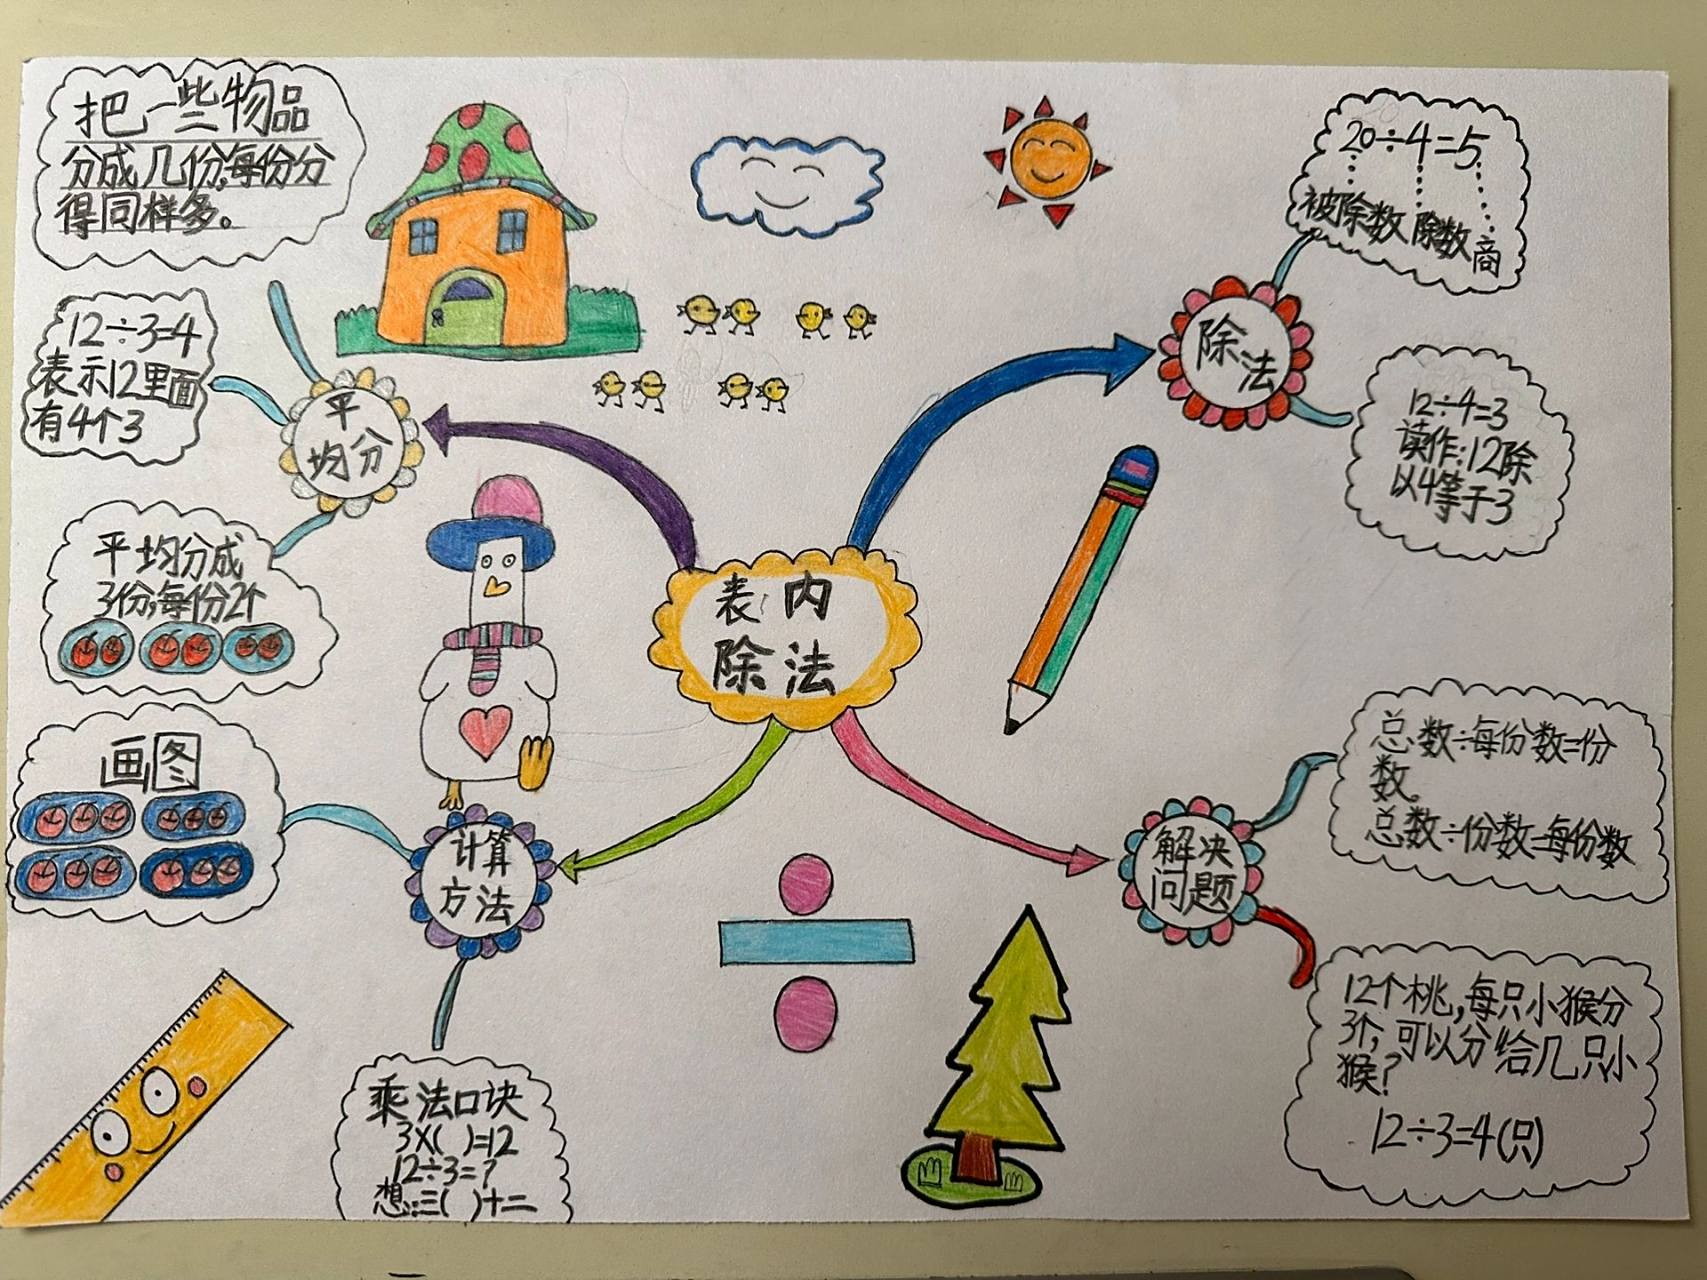 把一些物品
分成几份,每份分
得同样多。
12÷3=4
表示12里面
有4个3
平
均分
平均分成
3份,每份2个
画图
计算
方法
乘法口诀
3×( )=12
12÷3=?
想:三( )十二
表内
除法
20÷4=5
被除数 除数 商
除
法
12÷4=3
读作:12除
以4等于3
解决
问题
总数÷每份数=份
数。
总数÷份数=每份数
12个桃,每只小猴分
3个,可以分给几只小
猴?
12÷3=4(只)